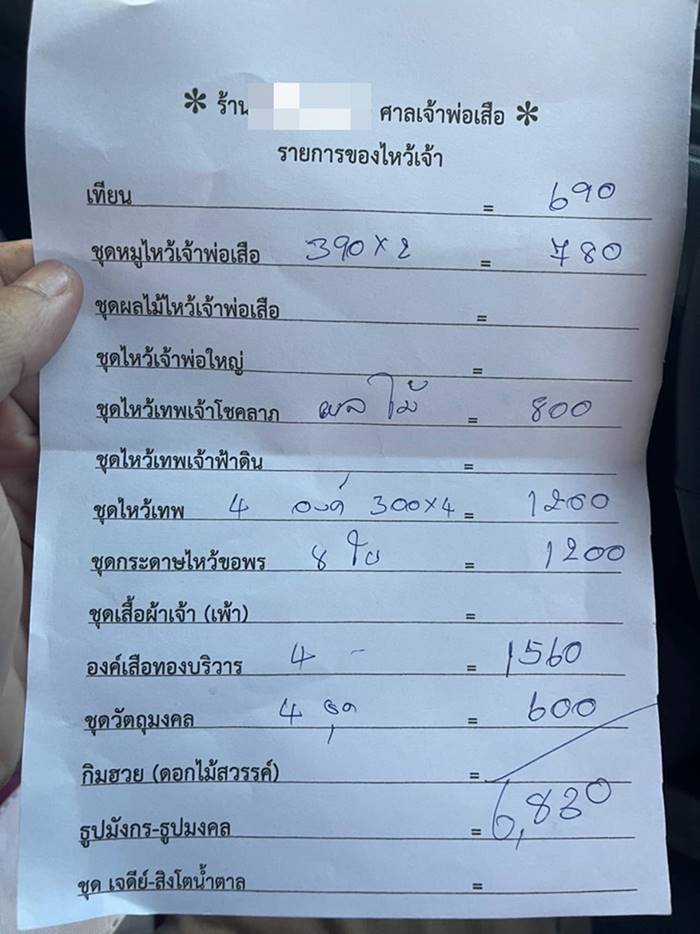 * ร้าน ศาลเจ้าพ่อเสือ *
รายการของไหว้เจ้า
เทียน = 690
ชุดหมูไหว้เจ้าพ่อเสือ 390×2 = 780
ชุดผลไม้ไหว้เจ้าพ่อเสือ =
ชุดไหว้เจ้าพ่อใหญ่ =
ชุดไหว้เทพเจ้าโชคลาภ ผลไม้ = 800
ชุดไหว้เทพเจ้าฟ้าดิน =
ชุดไหว้เทพ 4 องค์ 300×4 = 1200
ชุดกระดาษไหว้ขอพร 8 ใบ = 1200
ชุดเสื้อผ้าเจ้า (เพ้า) =
องค์เสือทองบริวาร 4 - = 1560
ชุดวัตถุมงคล 4 ชุด = 600
กิมฮวย (ดอกไม้สวรรค์) =
ธูปมังกร-ธูปมงคล = 6,830
ชุด เจดีย์-สิงโตน้ำตาล =